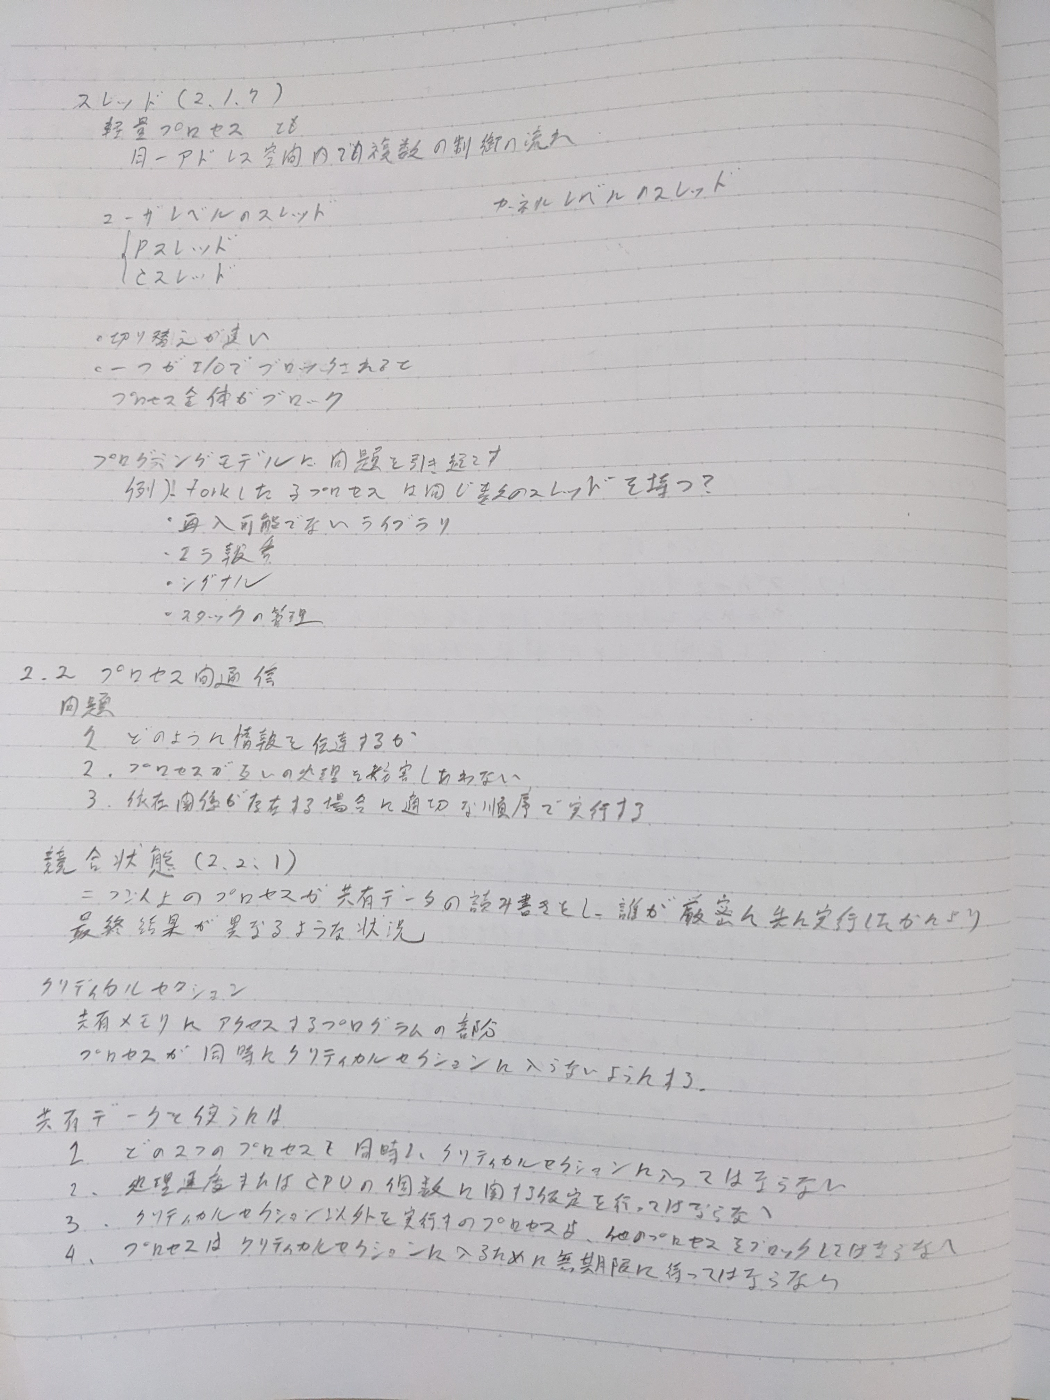 スレッド(2.1.7)
軽量プロセス とも
同一アドレス空間内で複数の制御の流れ
ユーザレベルのスレッド
カーネルレベルのスレッド
Pスレッド
Cスレッド
・切り替えが速い
・一つがI/Oでブロックされると
プロセス全体がブロック
プログラミングモデルに問題を引き起こす
例) forkした子プロセスは同じ数のスレッドを持つ?
・再入可能でないライブラリ
・エラ報告
・シグナル
・スタックの管理
2.2 プロセス間通信
問題
1. どのように情報を伝達するか
2. プロセスが互いの処理を妨害しあわない
3. 依存関係が存在する場合に適切な順序で実行する
競合状態(2.2.1)
二つ以上のプロセスが共有データの読み書きをし、誰が厳密に先に実行したかにより
最終結果が異なるような状況
クリティカルセクション
共有メモリにアクセスするプログラムの部分
プロセスが同時にクリティカルセクションに入らないようにする。
共有データを使うには
1 どの2つのプロセスも同時に、クリティカルセクションに入ってはならない
2. 処理速度またはCPUの個数に関する仮定を行ってはならない
3. クリティカルセクション以外を実行中のプロセスは、他のプロセスをブロックしてはならない
4. プロセスはクリティカルセクションに入るために無期限に待ってはならない